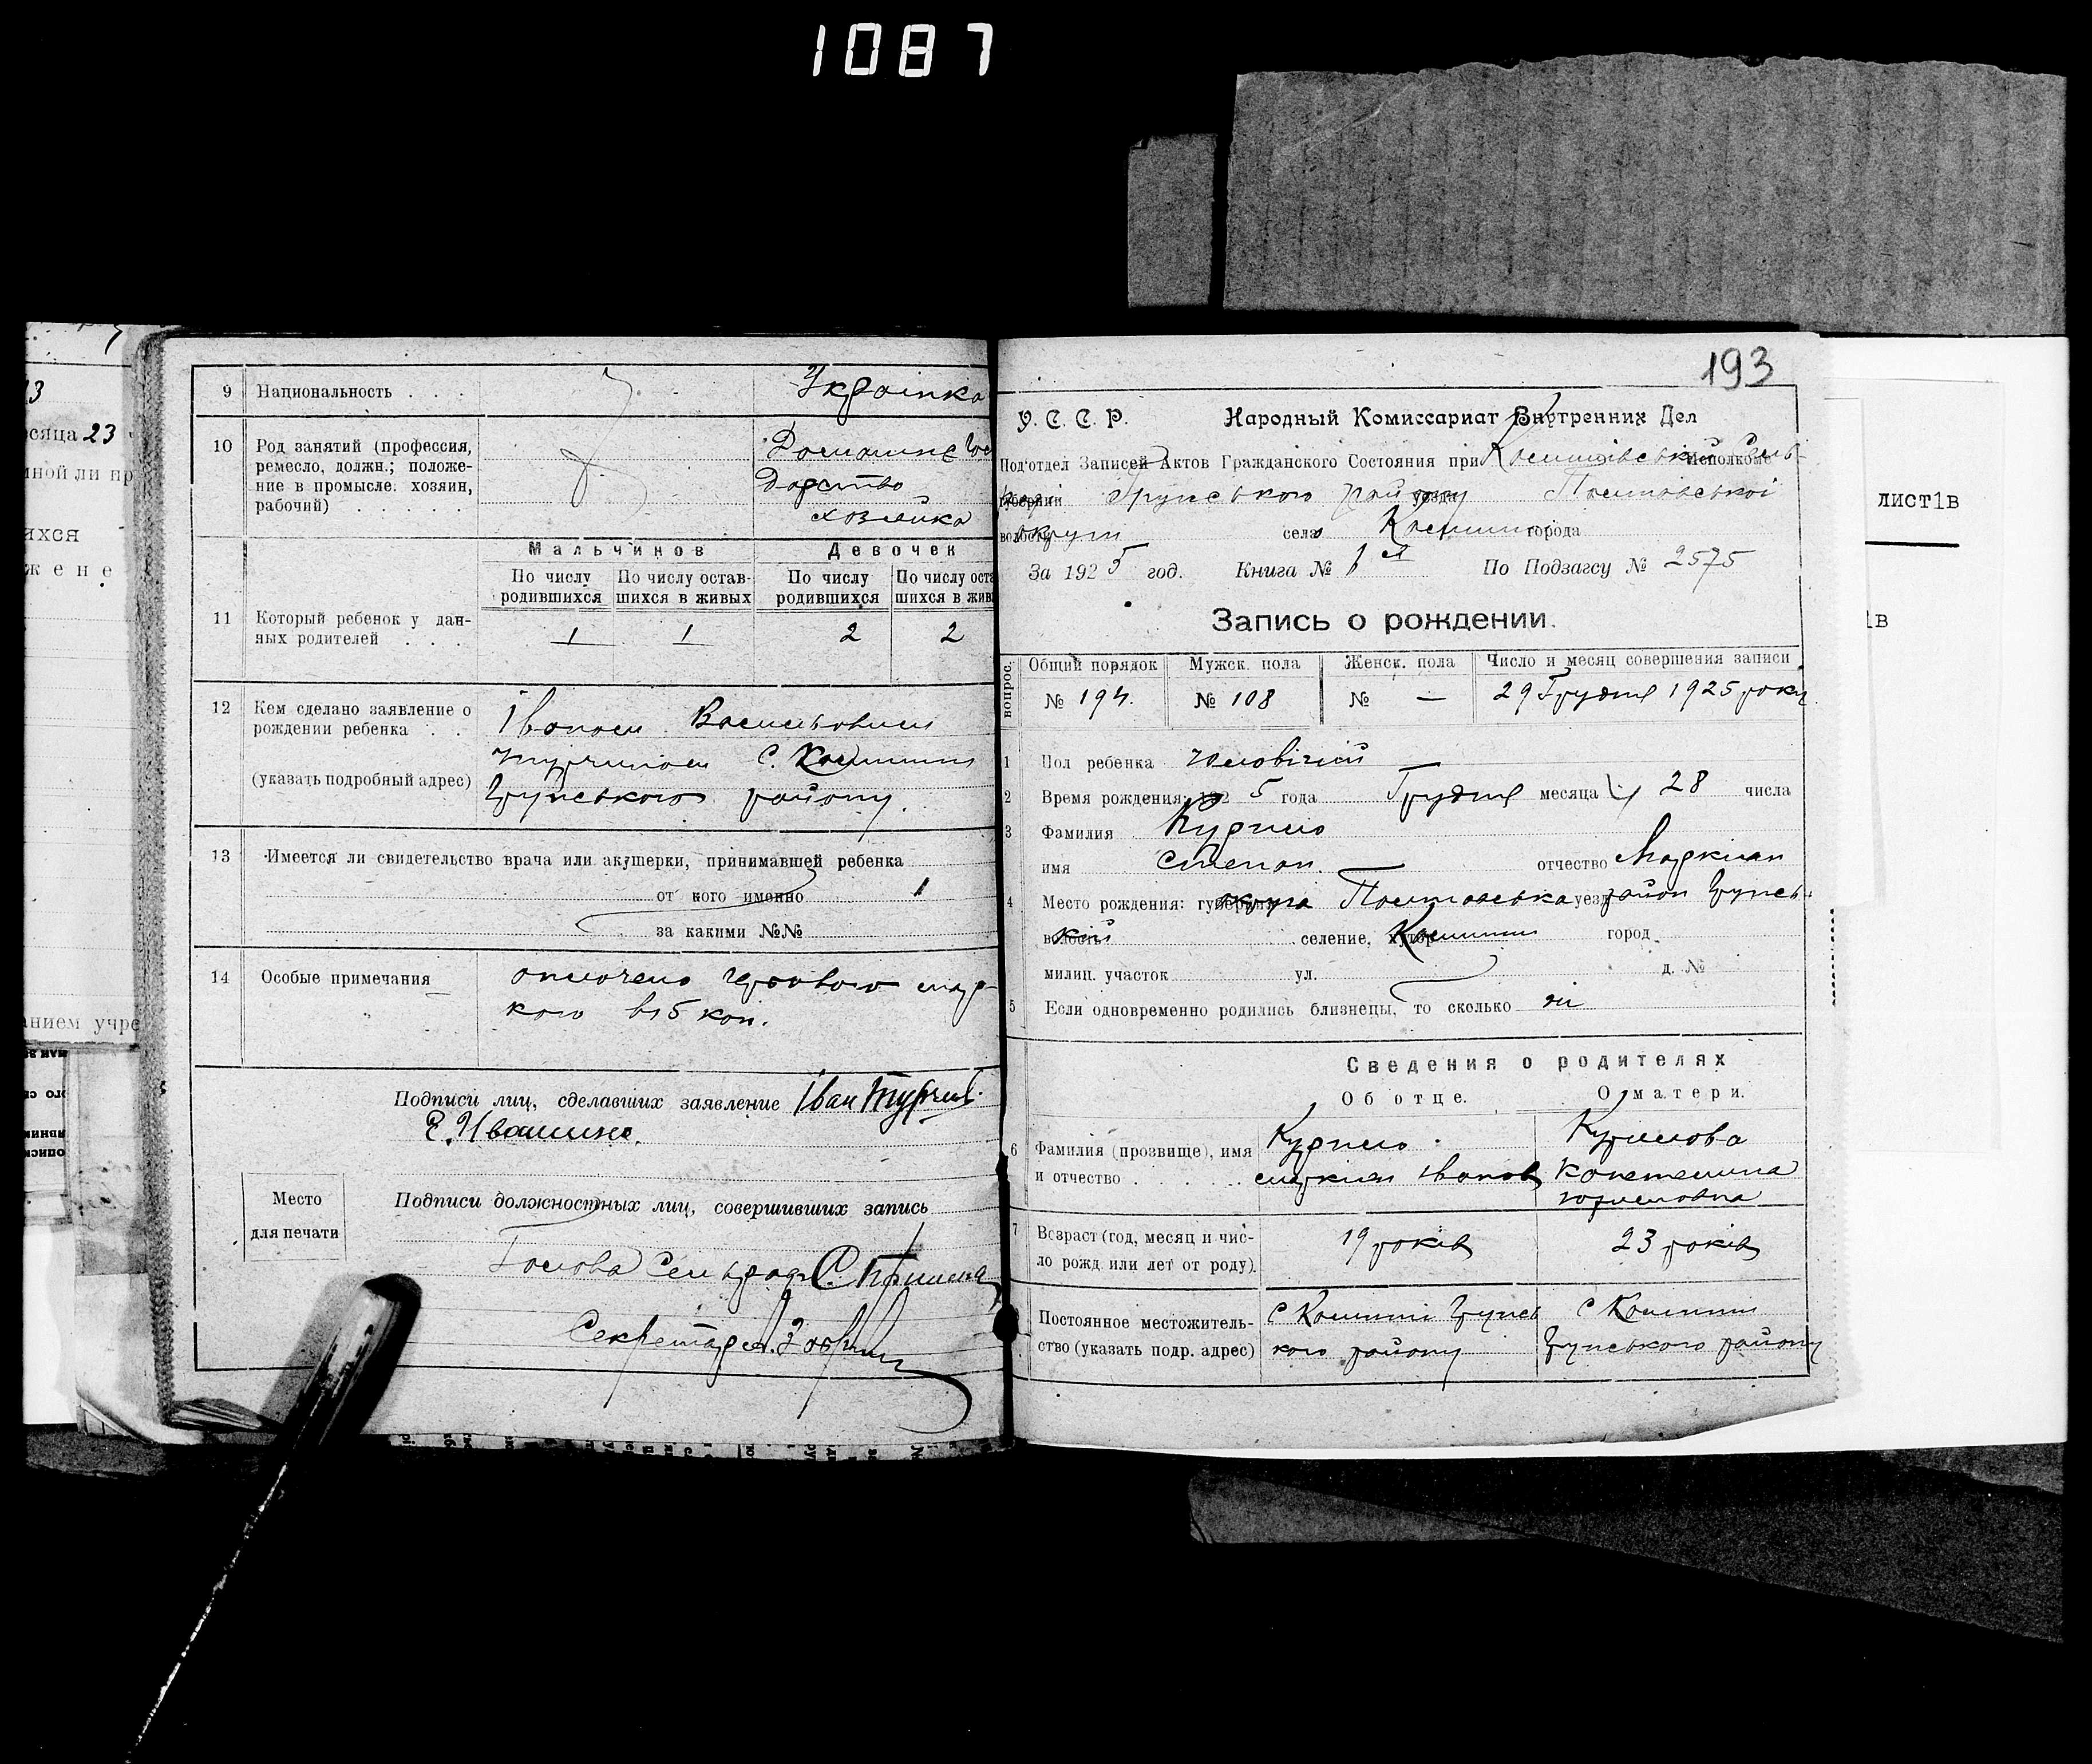 1087
13
сяца 23
ной ли пр
ихся
жене
анием учре
9 Национальность . . . Українка
10 Род занятий (профессия,
ремесло, должн.; положе-
ние в промысле: хозяин,
рабочий) . . . . .
Домашнє Гос
дарство
хозяйка
Мальчиков Девочек
По числу По числу остав- По числу По числу оста
родившихся шихся в живых родившихся шихся в жив
11 Который ребенок у дан-
ных родителей . . . 1 1 2 2
12 Кем сделано заявление о
рождении ребенка . .
(указать подробный адрес)
Іваном Васильовичем
Турчином с. Комиши
Грунського району.
13 Имеется ли свидетельство врача или акушерки, принимавшей ребенка
от кого именно
за какими №№
14 Особые примечания оплочено гербового мар-
кою в 15 коп.
Подписи лиц, сделавших заявление Іван Турчин
Е. Ивашина.
Место
для печати
Подписи должностных лиц, совершивших запись
Голова Сельради С.
Секретарь
193
У. С. С. Р. Народный Комиссариат Внутренних Дел
Под'отдел Записей Актов Гражданского Состояния при Комишівській Сель- исполкоме
губернии Грунського району уезда Полтавської
волости округи села Комиши города
За 1925 год. Книга № 1 По Подзагсу № 2575
Запись о рождении.
вопрос. Общий порядок Мужск. пола Женск. пола Число и месяц совершения записи
№ 194. № 108 № — 29 Грудня 1925 року
1 Пол ребенка чоловічий
2 Время рождения: 1925 года Грудня месяца 28 числа
3 Фамилия Курило
имя Степан. отчество Маркиан
4 Место рождения: губерния округа Полтавська уезд район Грунсь-
волость кий селение, хутор Комиши город
милиц. участок ул. д. №
5 Если одновременно родились близнецы, то сколько ні
Сведения о родителях
Об отце. О матери.
6 Фамилия (прозвище), имя
и отчество . . . . .
Курило
маркиан Іванов
Курилова
7 Возраст (год, месяц и чис-
ло рожд. или лет от роду). 19 років 23 років
Постоянное местожитель-
ство (указать подр. адрес)
с Комиші Грунсь
кого району
с Комиши
Грунського району
лист1в
1в